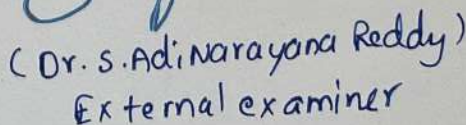 (Dr. S. Adi Narayana Reddy)
External examiner